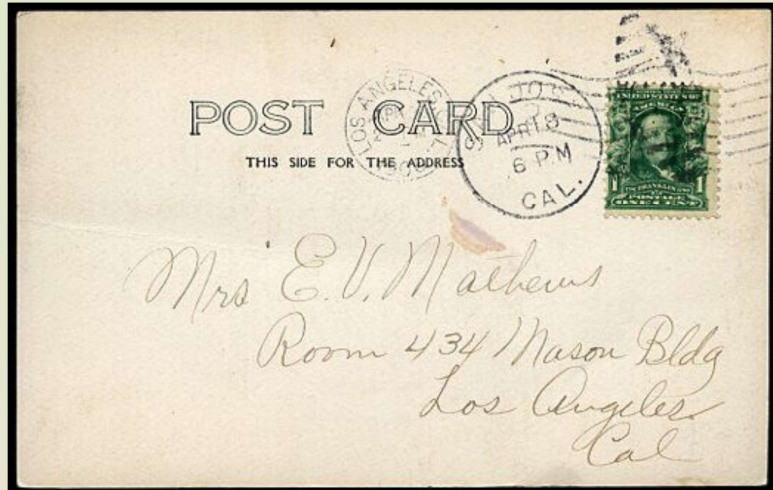 POST CARD
THIS SIDE FOR THE ADDRESS
LOS ANGELES
SAN JOSE
APR 18
6 PM
CAL.
UNITED STATES OF
AMERICA
1 1
POSTAGE
ONE CENT
Mrs E. V. Mathews
Room 434 Mason Bldg
Los Angeles
Cal